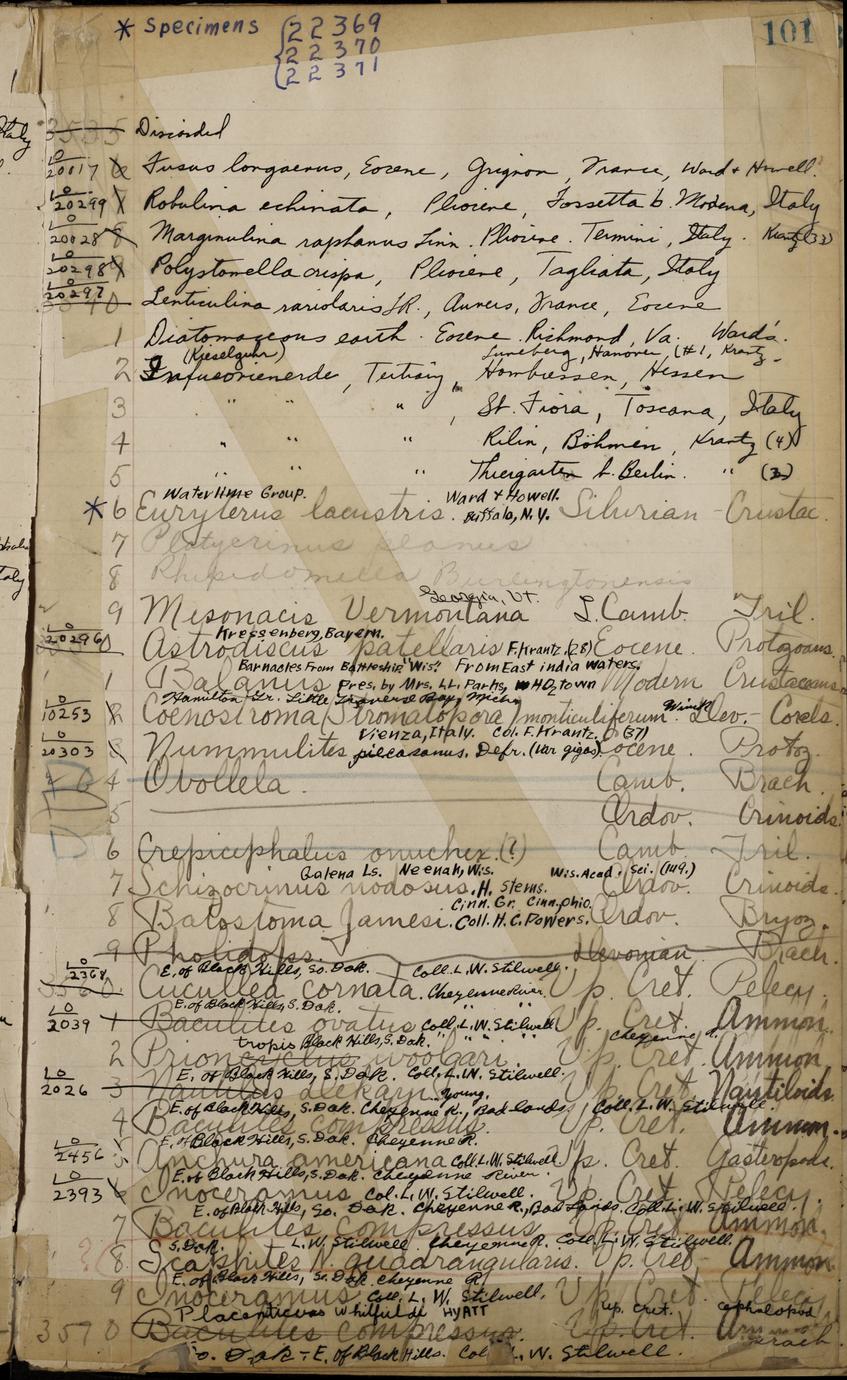 * Specimens { 22369
22370
22371
101
3535 Discarded
LO 20017 6 Fusus longaevus, Eocene, Grignon, France, Ward & Howell.
LO 20299 Robulina echinata, Pliocene, Fossetta b. Modena, Italy
LO 20028 8 Marginulina raphanus Linn. Pliocene. Termini, Italy. Krantz (33)
LO 20298 Polystomella crispa, Pliocene, Tagliata, Italy
LO 20297 Lenticulina rariolaris, Auvers, France, Eocene
1 Diatomaceous earth. Eocene. Richmond, Va. Ward's.
(Kieselguhr) Luneberg, Hanover, (#1, Krantz.
2 Infusorienerde, Tertiary, Hombressen, Hessen
3 " " " , St. Fiora, Toscana, Italy
4 " " " Rilin, Böhmen, Krantz (4)
5 " " " Thiergarten b. Berlin. " (3)
Waterlime Group. Ward & Howell.
* 6 Euryterus lacustris. Buffalo, N.Y. Silurian - Crustac.
7 Platycrinus planus
8 Rhipidomella Burlingtonensis
Georgia, Vt.
9 Mesonacis Vermontana L. Camb. Tril.
Kressenberg, Bayern.
LO 20296 Astrodiscus patellaris F. Krantz. (28) Eocene. Protozoans.
Barnacles From Battleship "Wis." From East india waters.
1 Balanus Pres. by Mrs. LL. Parks, Modern Crustaceans
Hamilton Gr. Little Traverse Bay, Mich.
LO 10253 2 Coenostroma (Stromatopora) monticuliferum Winch. Dev. Corals.
Vienza, Italy. Col. F. Krantz. (37)
LO 20303 3 Nummulites Defr. (var gigas) Eocene. Protoz.
4 Obollela. Camb. Brach.
5 Ordov. Crinoids.
6 Crepicephalus onuchex. (?) Camb. Tril.
Galena Ls. Neenah, Wis. Wis. Acad. Sci. (149.)
7 Schizocrinus nodosus. H. Stems. Ordov. Crinoids.
Cinn. Gr. Cinn. Ohio.
8 Batostoma Jamesi. Coll. H. C. Powers. Ordov. Bryoz.
9 Pholidops. Devonian Brach.
E. of Black Hills, So. Dak. Coll. L. W. Stilwell.
LO 2364 Cucullea cornata. Cheyenne River. Up. Cret. Pelecy.
E. of Black Hills, S. Dak.
LO 2039 1 Baculites ovatus Coll. L. W. Stilwell Up. Cret. Ammon.
tropis Black Hills, S. Dak. " " " " Cheyenne R.
2 Prionocyclus woolgari. Up. Cret. Ammon.
E. of Black Hills, S. Dak. Coll. L. W. Stilwell.
LO 2026 3 Nautilus dekayi young. Up. Cret. Nautiloids.
E. of Black Hills, S. Dak. Cheyenne R., Bad lands, Coll. L. W. Stilwell.
4 Baculites compressus. Up. Cret. Ammon.
E. of Black Hills, S. Dak. Cheyenne R.
LO 2456 5 Anchura americana Coll. L. W. Stilwell Up. Cret. Gasteropods.
E. of Black Hills, S. Dak. Cheyenne River.
LO 2393 6 Inoceramus Col. L. W. Stilwell. Up. Cret. Pelecy.
E. of Black Hills, So. Dak. Cheyenne R., Bad Lands. Coll. L. W. Stilwell.
7 Baculites compressus Up. Cret. Ammon.
S. Dak. L. W. Stilwell Cheyenne R. Coll. L. W. Stilwell.
8 Scaphites N. quadrangularis. Up. Cret. Ammon.
E. of Black Hills, So. Dak. Cheyenne R.
9 Inoceramus Coll. L. W. Stilwell. Up. Cret. Pelecy.
Placenticeras Whitfieldi HYATT Up. Cret. cephalopod
3570 Baculites compressus. Up. Cret.
So. Dak - E. of Black Hills. Col. L. W. Stilwell.